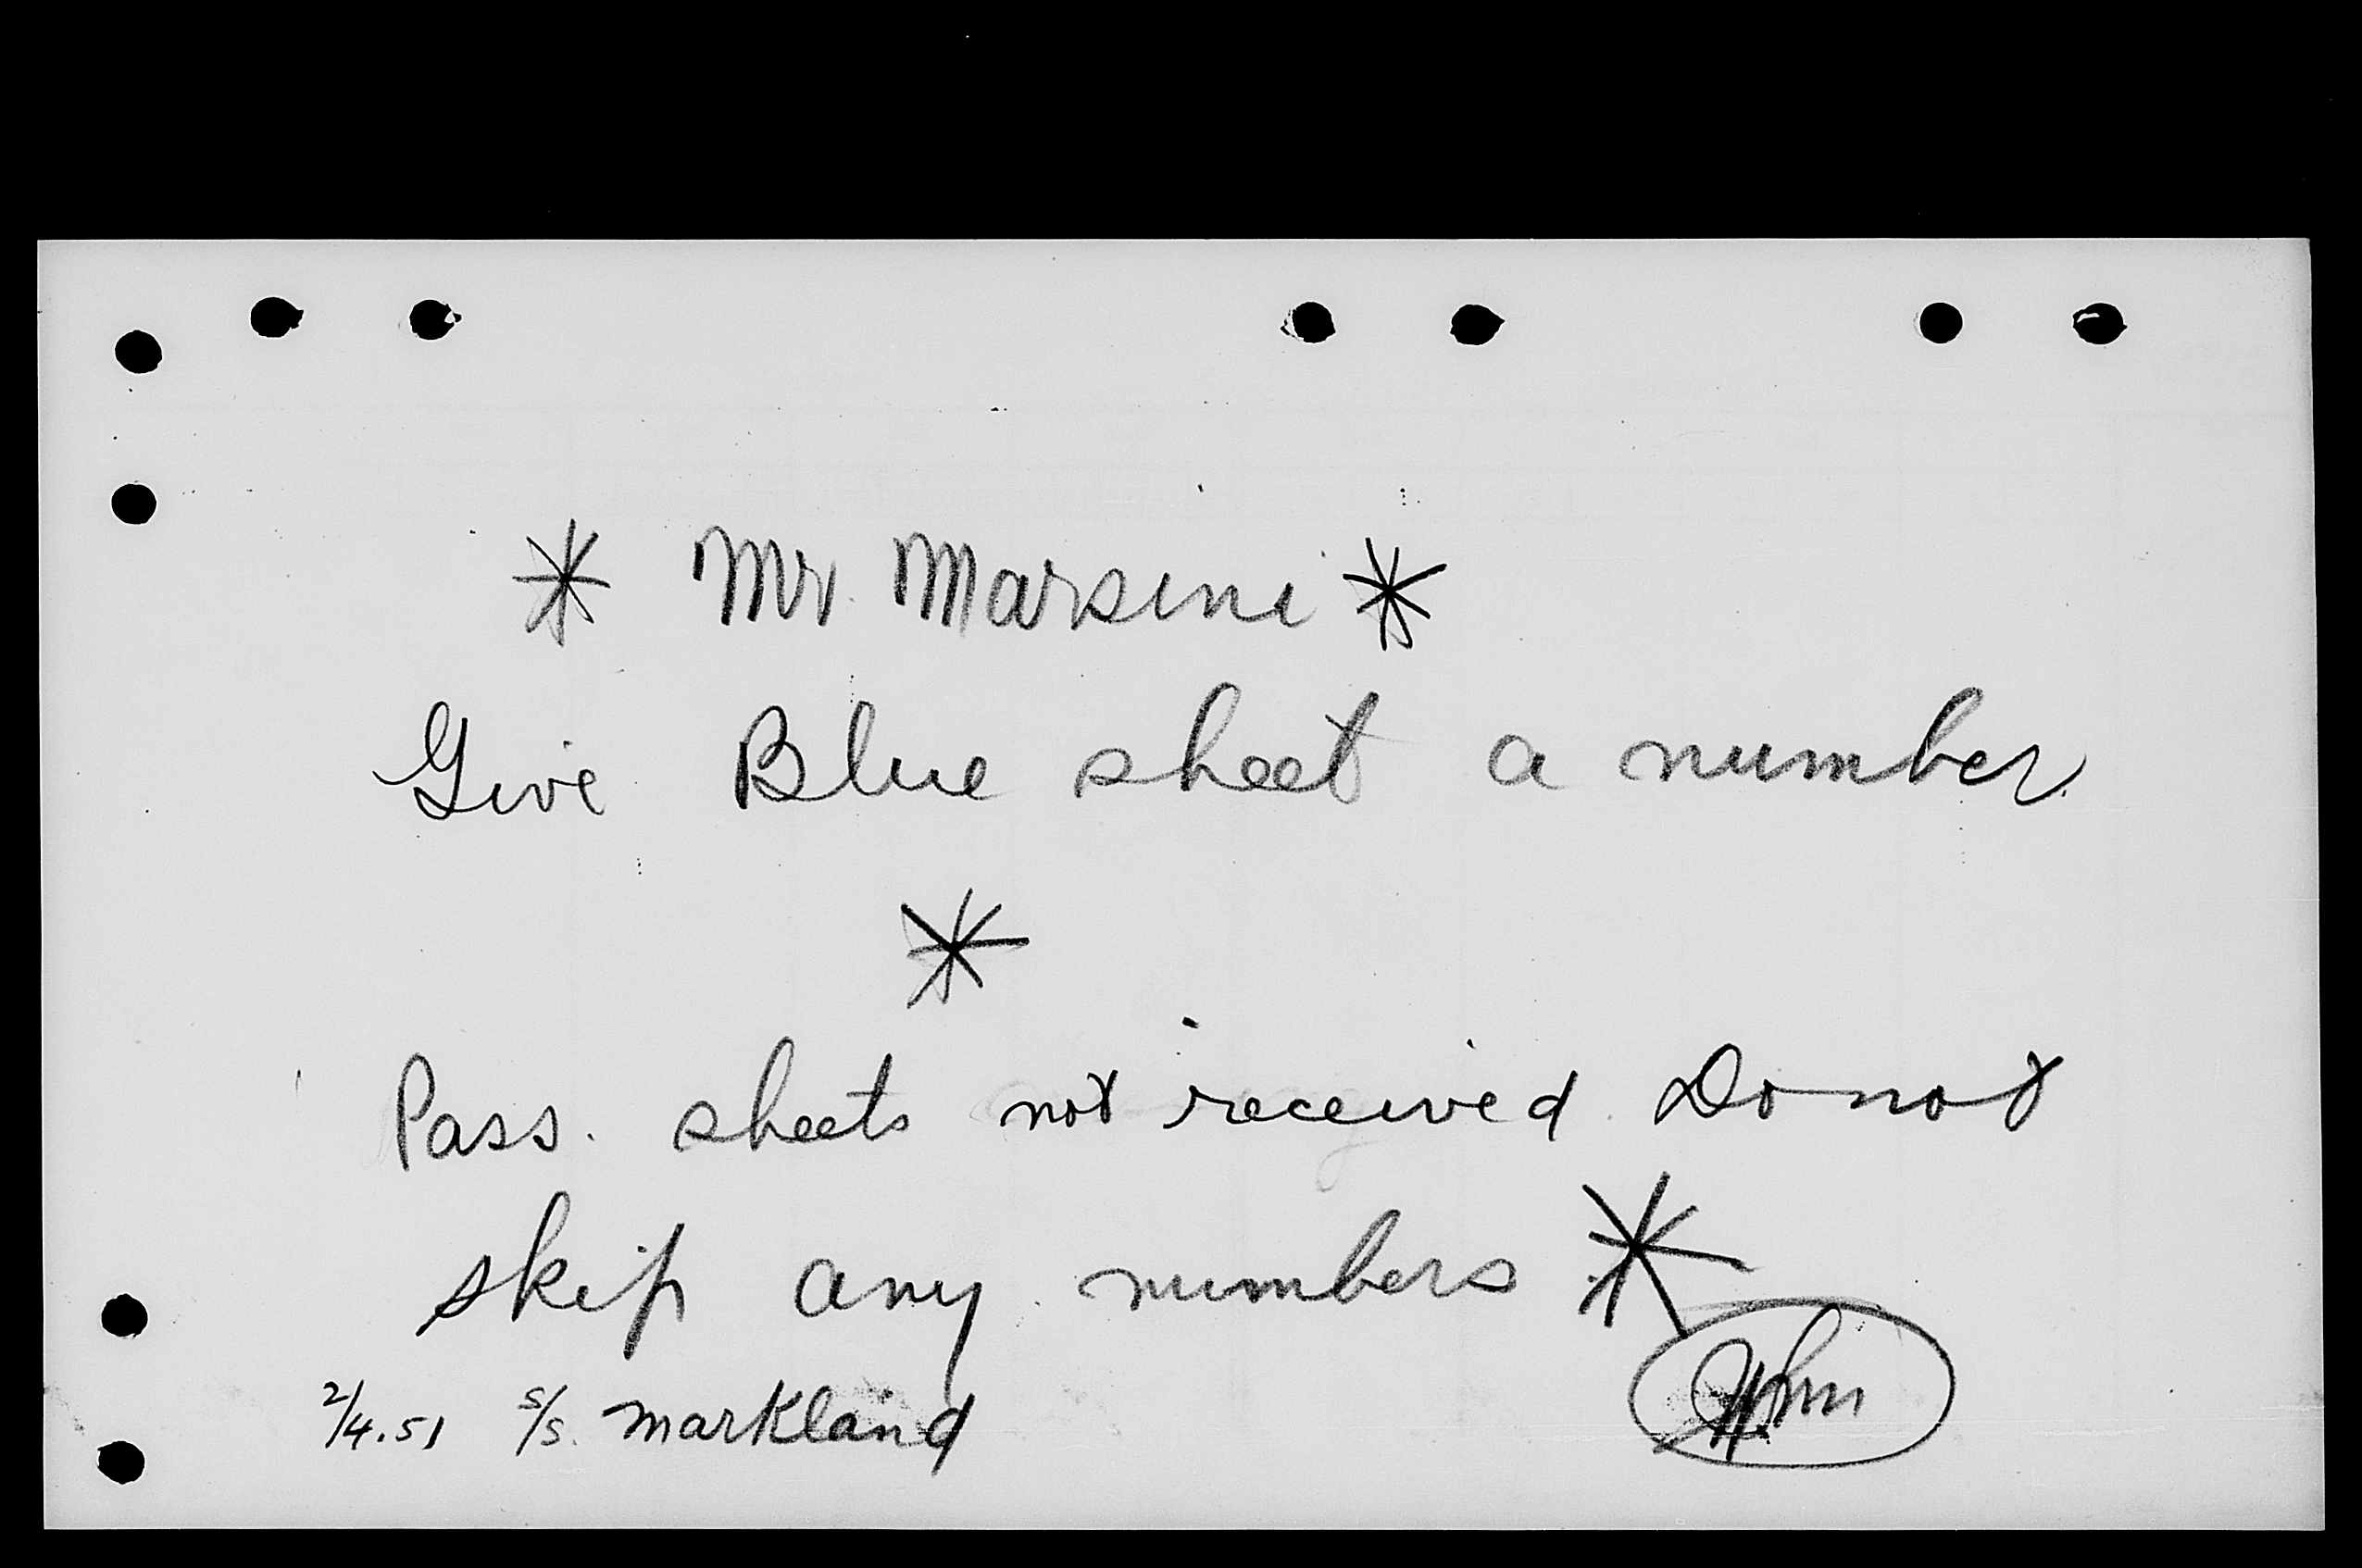 * Mr. Marsini *
Give Blue sheet a number.
*
Pass. sheets not received. Do not
skip any numbers *
2/4.51 S/S. Markland